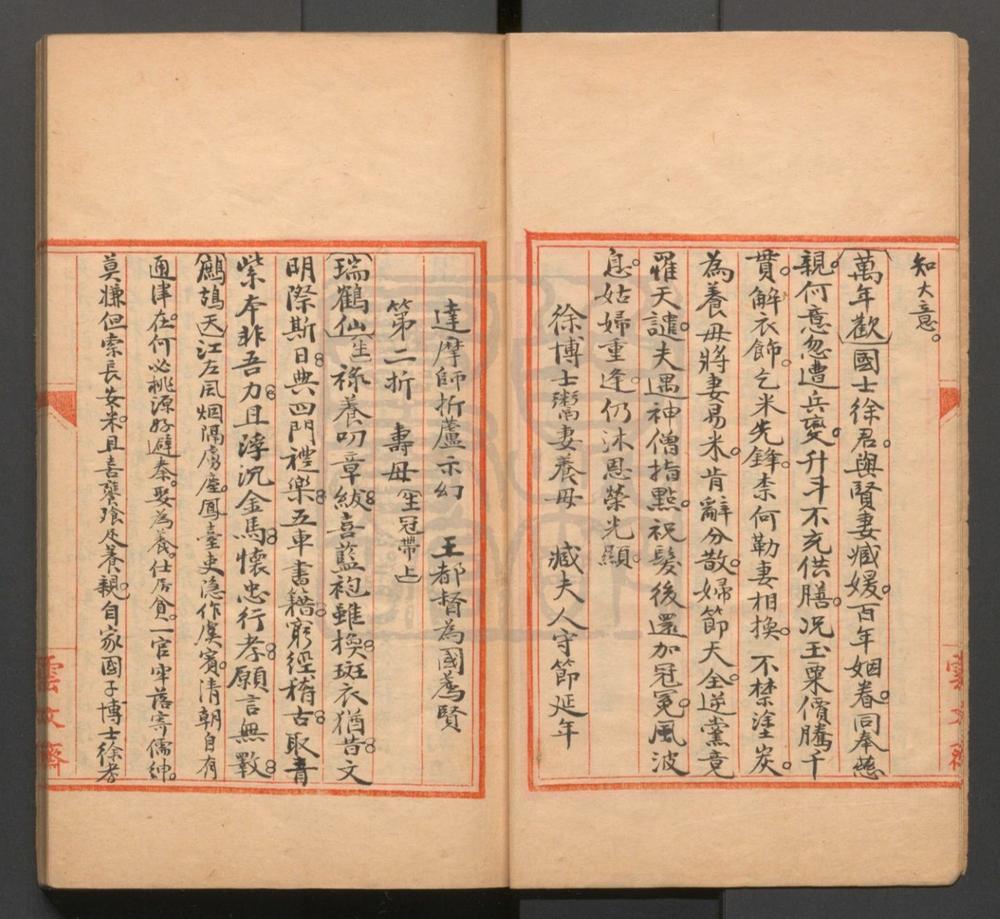 知大意。
〔萬年歡〕國士徐君。與賢妻臧媛。百年姻眷。同奉慈
親。何意忽遭兵變。升斗不充供膳。况玉粟價騰千
貫。解衣飾。乞米先鋒。柰何勒妻相換。 不禁塗炭。
為養母將妻易米。肯辭分散。婦節天全。逆黨竟
罹天譴。夫遇神僧指點。祝髮後還加冠冕。風波
息。姑婦重逢。仍沐恩榮光顯。
徐博士鬻妻養母 臧夫人守節延年
達摩師折蘆示幻 王都督為國薦賢
第二折 壽母 生冠帶上
〔瑞鶴仙〕生 祿養叨章紱。喜藍袍雖換。斑衣猶昔。文
明際斯日。典四門禮樂。五車書籍。窮經稽古。取青
紫本非吾力。且浮沉金馬。懷忠行孝。願言無斁
〔鷓鴣天〕江左風烟隔虜塵。鳳臺吏隱作虞賓。清朝自有
通津在。何必桃源好避秦。娶為養。仕居貧。一官牢落寄儒紳。
莫嫌但索長安米。且喜饔飧足養親。自家國子博士徐孝
雲文齋
雲文齋